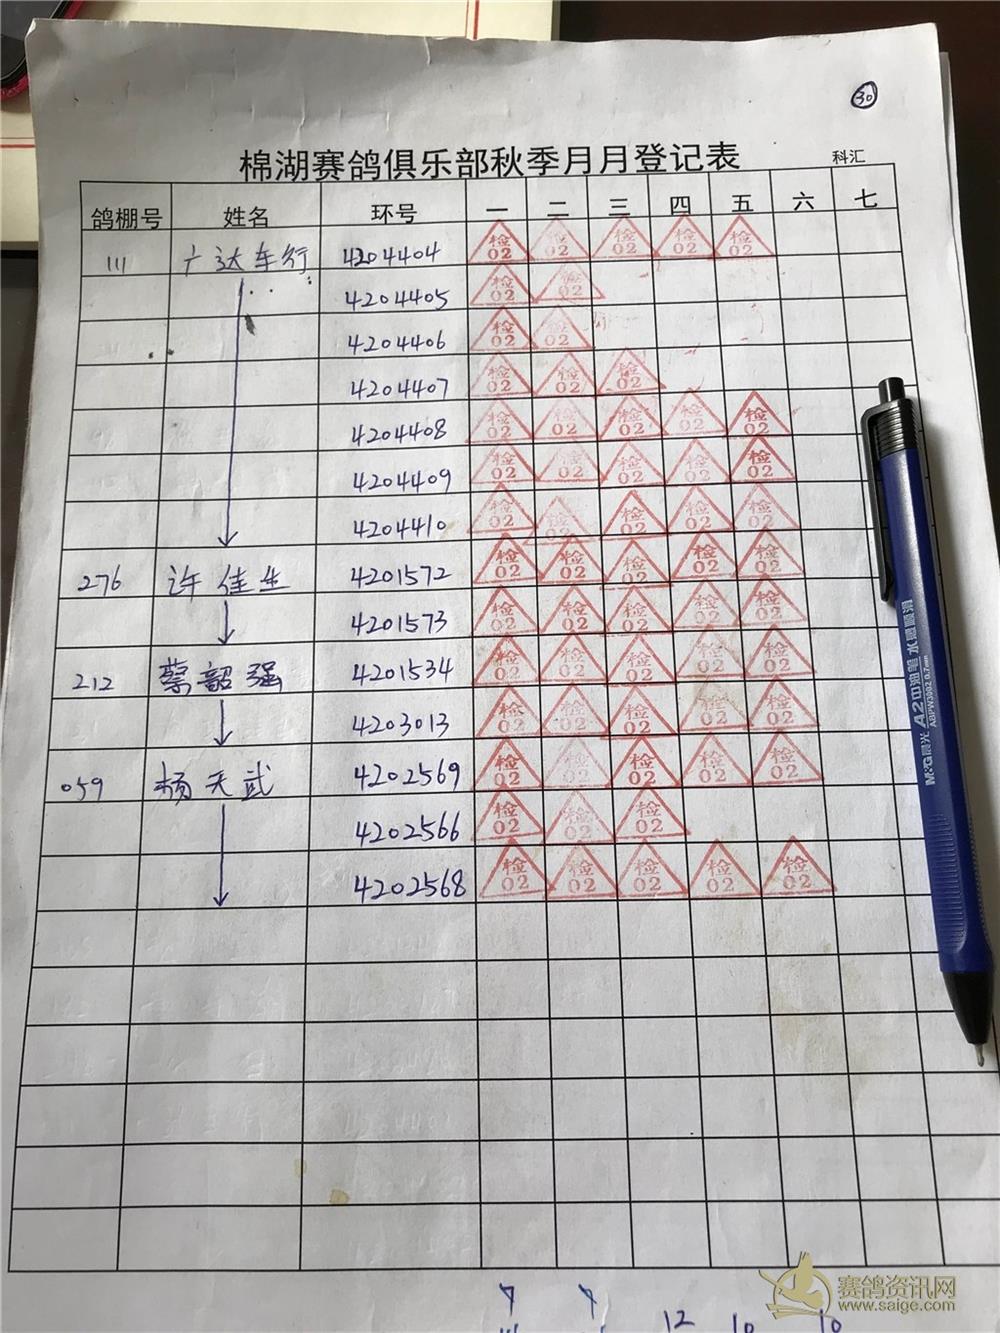 30
棉湖赛鸽俱乐部秋季月月登记表 科汇
鸽棚号 姓名 环号 一 二 三 四 五 六 七
111 广达车行 4204404 检02 检02 检02 检02 检02
4204405 检02 检02
4204406 检02 检02
4204407 检02 检02 检02
4204408 检02 检02 检02 检02 检02
4204409 检02 检02 检02 检02 检02
4204410 检02 检02 检02 检02 检02
276 许佳生 4201572 检02 检02 检02 检02 检02
4201573 检02 检02 检02 检02 检02
212 蔡韶强 4201534 检02 检02 检02 检02 检02
4203013 检02 检02 检02 检02 检02
059 杨天武 4202569 检02 检02 检02 检02 检02
4202566 检02 检02 检02
4202568 检02 检02 检02 检02 检02
12 10 10
M&G晨光 A2中油笔 水感顺滑
ABPW3002 0.7mm
赛鸽资讯网
www.saige.com